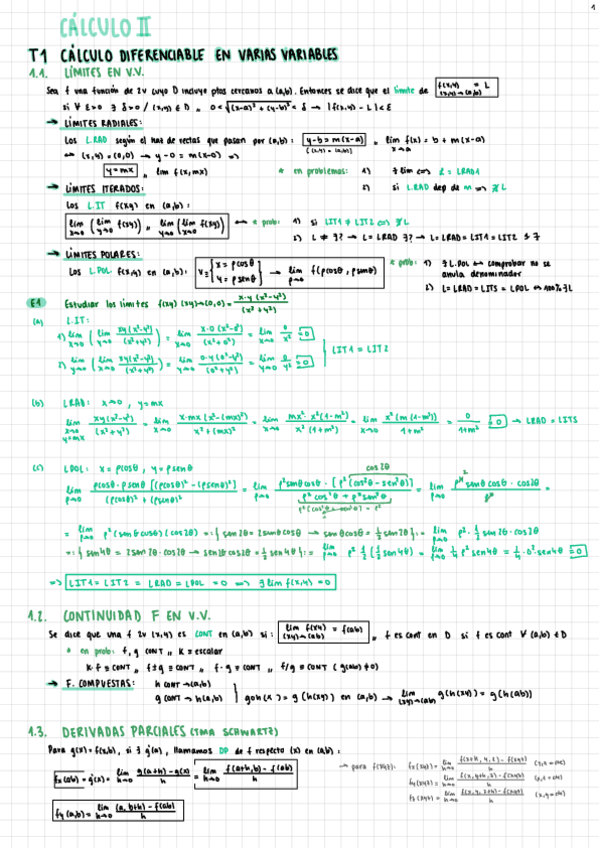 1
CÁLCULO II
T1 CÁLCULO DIFERENCIABLE EN VARIAS VARIABLES
1.1. LÍMITES EN V.V.
Sea f una función de 2v cuyo D incluye ptos cercanos a (a,b). Entonces se dice que el límite de f(x,y) = L
(x,y)→(a,b)
si ∀ ε>0 ∃ δ>0 / (x,y) ∈ D ,, 0 < √(x-a)² + (y-b)² < δ → |f(x,y) - L| < ε
→ LÍMITES RADIALES:
Los L.RAD según el haz de rectas que pasan por (a,b): y-b = m(x-a) ,, lim f(x) = b + m(x-a)
(x,y) = (a,b) x→a
↔ (x,y) = (0,0) → y-0 = m(x-0) =>
y=mx ,, lim f(x,mx) * en problemas: 1) ∃ lim <=> L = LRAD
2) si L.RAD dep de m => ∄ L
→ LÍMITES ITERADOS:
Los L.IT f(xy) en (a,b):
lim (lim f(xy)) ,, lim (lim f(xy)) * prob: 1) si LIT1 ≠ LIT2 <=> ∄L
x→a y→b y→b x→a 2) L ≠ ∃? → L = LRAD ∃? → L = LRAD = LIT1 = LIT2 ≠ ∃
→ LÍMITES POLARES:
Los L.POL f(x,y) en (a,b): V = { x = ρcosθ y = ρsenθ → lim f(ρcosθ, ρsenθ) * prob: 1) ∃ L.POL ↔ comprobar no se
ρ→0 anula denominador
2) L = LRAD = LITS = LPOL ↔ 100% ∃L
E1 Estudiar los límites f(xy) (xy)→(0,0) = x·y (x²-y²) / (x²+y²)
(a) L.IT:
1) lim (lim xy(x²-y²)/(x²+y²)) = lim x·0(x²-0²)/(x²+0²) = lim 0/x² = 0
x→0 y→0 x→0 x→0
LIT1 = LIT2
2) lim (lim xy(x²-y²)/(x²+y²)) = lim 0·y(0²-y²)/(0²+y²) = lim 0/y² = 0
y→0 x→0 y→0 y→0
(b) LRAD: x→0 , y=mx
lim xy(x²-y²)/(x²+y²) = lim x·mx(x²-(mx)²)/x²+(mx)² = lim mx²·x²(1-m²)/x²(1+m²) = lim x²(m(1-m²))/1+m² = 0/1+m² = 0 → LRAD = LITS
x→0 y=mx x→0 x→0 x→0
(c) LPOL: x = ρcosθ , y = ρsenθ
cos2θ
lim ρcosθ·ρsenθ [(ρcosθ)² - (ρsenθ)²] / (ρcosθ)² + (ρsenθ)² = lim ρ²senθcosθ · [ρ²(cos²θ - sen²θ)] / ρ²cos²θ + ρ²sen²θ = lim ρ⁴ senθcosθ · cos2θ / ρ² =
ρ→0 ρ→0 ρ→0
ρ²(cos²θ+sen²θ) = ρ²
= lim ρ²(senθcosθ)(cos2θ) =: { sen2θ = 2senθcosθ → senθcosθ = 1/2 sen2θ } := lim ρ² · 1/2 sen2θ · cos2θ
ρ→0 ρ→0
=: { sen4θ = 2sen2θ·cos2θ → sen2θcos2θ = 1/2 sen4θ } := lim ρ² 1/2 (1/2 sen4θ) = lim 1/4 ρ² sen4θ = 1/4 · 0² · sen4θ = 0
ρ→0 ρ→0
=> LIT1 = LIT2 = LRAD = LPOL = 0 => ∃ lim f(x,y) = 0
1.2. CONTINUIDAD F EN V.V.
Se dice que una f 2v (x,y) es CONT en (a,b) si: lim f(xy) = f(ab) ,, f es cont en D si f es cont ∀ (a,b) ∈ D
(xy)→(ab)
* en prob: f, g CONT ,, K = escalar
K·f = CONT ,, f±g = CONT ,, f·g = CONT ,, f/g = CONT (g(ab) ≠ 0)
→ F. COMPUESTAS: h CONT → (a,b)
g CONT → h(a,b) } goh(x) = g(h(xy)) en (a,b) → lim g(h(xy)) = g(h(ab))
(xy)→(ab)
1.3. DERIVADAS PARCIALES (TMA SCHWARTZ)
Para g(x) = f(x,b), si ∃ g'(a), llamamos DP de f respecto (x) en (a,b):
fx(ab) = g'(x) = lim g(a+h) - g(x) / h = lim f(a+h,b) - f(ab) / h → para f(xyz): fx(xyz) = lim f(x+h, y, z) - f(xyz) / h (y,z = cte)
h→0 h→0 fy(xyz) = lim f(x, y+h, z) - f(xyz) / h (x,z = cte)
fy(a,b) = lim (a, b+h) - f(ab) / h fz(xyz) = lim f(x, y, z+h) - f(xyz) / h (x,y = cte)
h→0